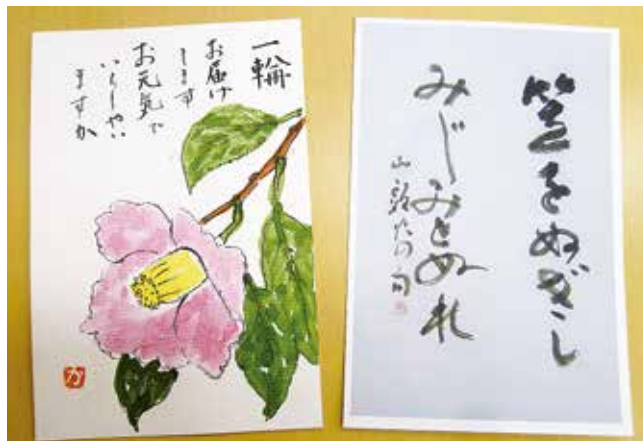 一輪
お届け
します
お元気で
いらっしゃい
ますか
笠をぬぎし
みじみとぬれ
山頭火の句